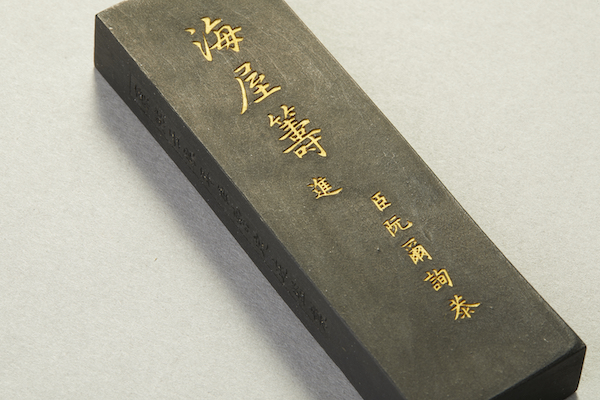 海屋籌
臣阮爾詢恭
進